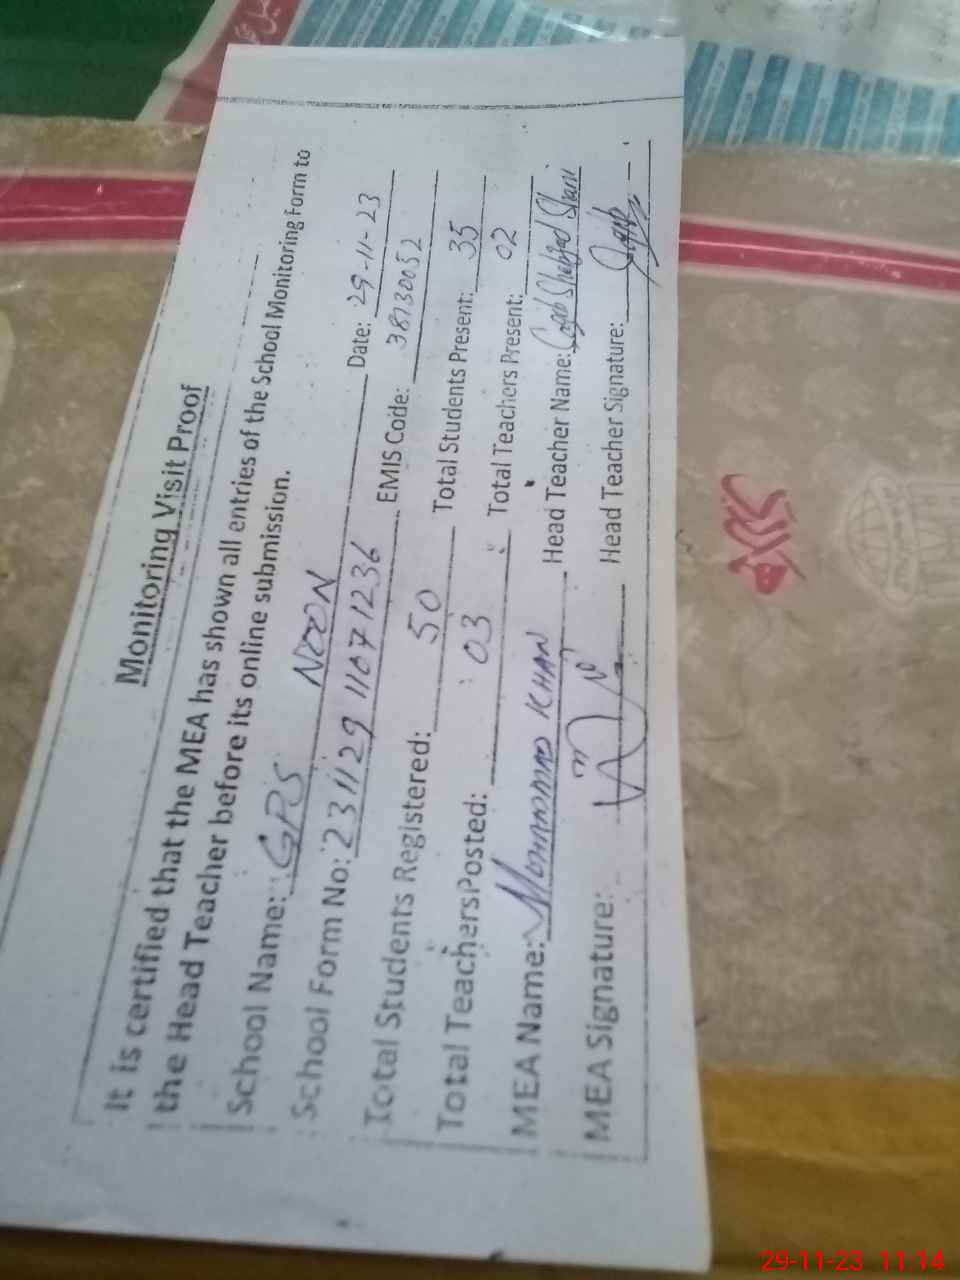 Monitoring Visit Proof
It is certified that the MEA has shown all entries of the School Monitoring Form to
the Head Teacher before its online submission.
School Name: GPS NOON Date: 29-11-23
School Form No: 231129 11071236 EMIS Code: 38130052
Total Students Registered: 50 Total Students Present: 35
Total Teachers Posted: 03 Total Teachers Present: 02
MEA Name: MOHAMMAD KHAN Head Teacher Name:
MEA Signature: Head Teacher Signature:
29-11-23 11:14